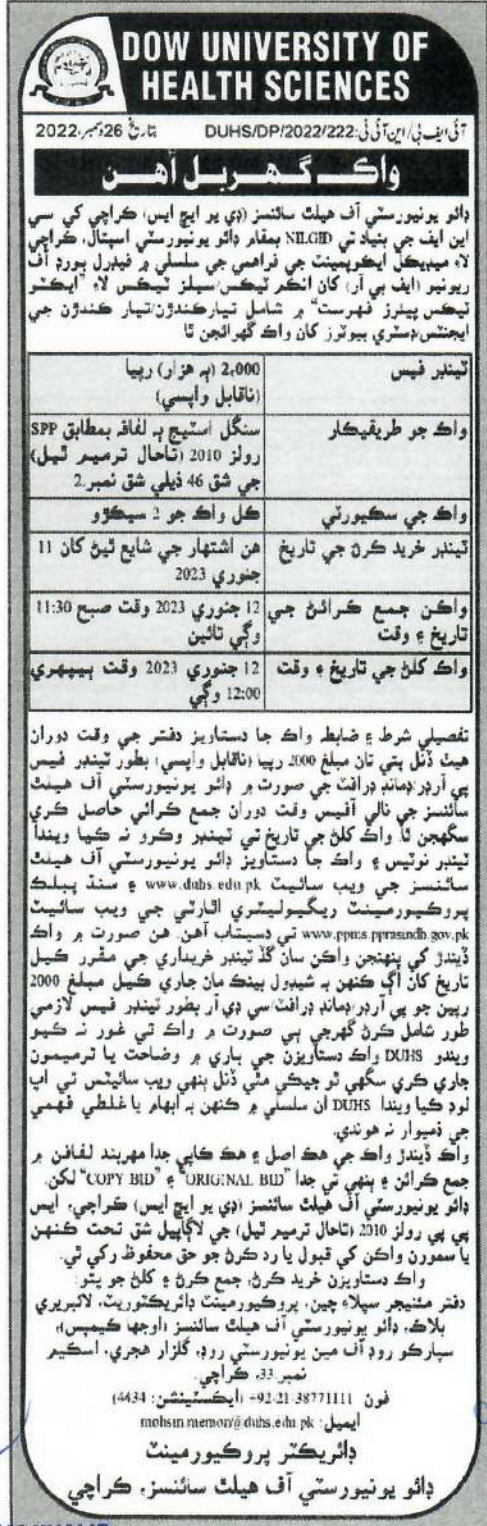 DOW UNIVERSITY OF
HEALTH SCIENCES
آئی ایف بی/این آئی ٹی:DUHS/DP/2022/222 بتاریخ 26دسمبر، 2022
واڪ گهربل آهن
ڊائو يونيورسٽي آف هيلٿ سائنسز (ڊي يو ايڇ ايس) ڪراچي کي سي
اين ايف جي بنياد تي NILGID بمقام ڊائو يونيورسٽي اسپتال، ڪراچي
لاءِ ميڊيڪل ايڪوپمينٽ جي فراهمي جي سلسلي ۾ فيڊرل بورڊ آف
ريونيو (ايف بي آر) کان انڪم ٽيڪس/سيلز ٽيڪس لاءِ "ايڪٽو
ٽيڪس پيئرز فهرست" ۾ شامل تيارڪندڙن/تيار ڪندڙن جي
ايجنٽس/ڊسٽري بيوٽرز کان واڪ گهرائجن ٿا
ٽينڊر فيس 2,000 (ٻه هزار) رپيا
(ناقابل واپسي)
واڪ جو طريقيڪار سنگل اسٽيج ٻه لفافه بمطابق SPP
رولز 2010 (تاحال ترميم ٿيل)
جي شق 46 ذيلي شق نمبر.2
واڪ جي سڪيورٽي ڪل واڪ جو 2 سيڪڙو
ٽينڊر خريد ڪرڻ جي تاريخ هن اشتهار جي شايع ٿيڻ کان 11
جنوري 2023
واڪن جمع ڪرائڻ جي تاريخ ۽ وقت 12 جنوري 2023 وقت صبح 11:30
وڳي تائين
واڪ کلڻ جي تاريخ ۽ وقت 12 جنوري 2023 وقت ٻيپهري
12:00 وڳي
تفصيلي شرط ۽ ضابطه واڪ جا دستاويز دفتر جي وقت دوران
هيٺ ڏنل پتي تان مبلغ 2000 رپيا (ناقابل واپسي) بطور ٽينڊر فيس
پي آرڊر/ڊمانڊ ڊرافٽ جي صورت ۾ ڊائو يونيورسٽي آف هيلٿ
سائنسز جي نالي آفيس وقت دوران جمع ڪرائي حاصل ڪري
سگهجن ٿا. واڪ کلڻ جي تاريخ تي ٽينڊر وڪرو نه ڪيا ويندا
ٽينڊر نوٽيس ۽ واڪ جا دستاويز ڊائو يونيورسٽي آف هيلٿ
سائنسز جي ويب سائيٽ www.duhs.edu.pk ۽ سنڌ پبلڪ
پروڪيورمينٽ ريگيوليٽري اٿارٽي جي ويب سائيٽ
www.ppms.pprasindh.gov.pk تي دستياب آهن. هن صورت ۾ واڪ
ڏيندڙ کي پنهنجن واڪن سان گڏ ٽينڊر خريداري جي مقرر ڪيل
تاريخ کان اڳ ڪنهن به شيڊول بينڪ مان جاري ڪيل مبلغ 2000
رپين جو پي آرڊر/ڊمانڊ ڊرافٽ/سي ڊي آر بطور ٽينڊر فيس لازمي
طور شامل ڪرڻ گهرجي ٻي صورت ۾ واڪ تي غور نه ڪيو
ويندو DUHS واڪ دستاويزن جي باري ۾ وضاحت يا ترميمون
جاري ڪري سگهي ٿو جيڪي مٿي ڏنل ٻنهي ويب سائيٽس تي اپ
لوڊ ڪيا ويندا DUHS ان سلسلي ۾ ڪنهن به ابهام يا غلطي فهمي
جي ذميوار نه هوندي.
واڪ ڏيندڙ واڪ جي هڪ اصل ۽ هڪ ڪاپي جدا مهربند لفافن ۾
جمع ڪرائن ۽ ٻنهي تي جدا "ORIGINAL BID" ۽ "COPY BID" لکن.
ڊائو يونيورسٽي آف هيلٿ سائنسز (ڊي يو ايڇ ايس) ڪراچي، ايس
پي پي رولز 2010 (تاحال ترميم ٿيل) جي لاڳاپيل شق تحت ڪنهن
يا سمورن واڪن کي قبول يا رد ڪرڻ جو حق محفوظ رکي ٿي.
واڪ دستاويزن خريد ڪرڻ، جمع ڪرڻ ۽ کلڻ جو پتو:
دفتر مئنيجر سپلاءِ چين، پروڪيورمينٽ ڊائريڪٽوريٽ، لائبريري
بلاڪ، ڊائو يونيورسٽي آف هيلٿ سائنسز (اوجها ڪيمپس)،
سپارڪو روڊ آف مين يونيورسٽي روڊ، گلزار هجري، اسڪيم
نمبر.33، ڪراچي.
فون 38771111-21-92+ (ايڪسٽينشن: 4434)
ايميل: mohsin.memon@duhs.edu.pk
ڊائريڪٽر پروڪيورمينٽ
ڊائو يونيورسٽي آف هيلٿ سائنسز، ڪراچي